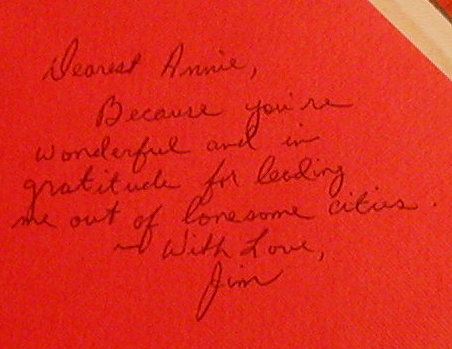 Dearest Annie,
Because you're
wonderful and in
gratitude for leading
me out of lonesome cities.
~ With Love,
Jim